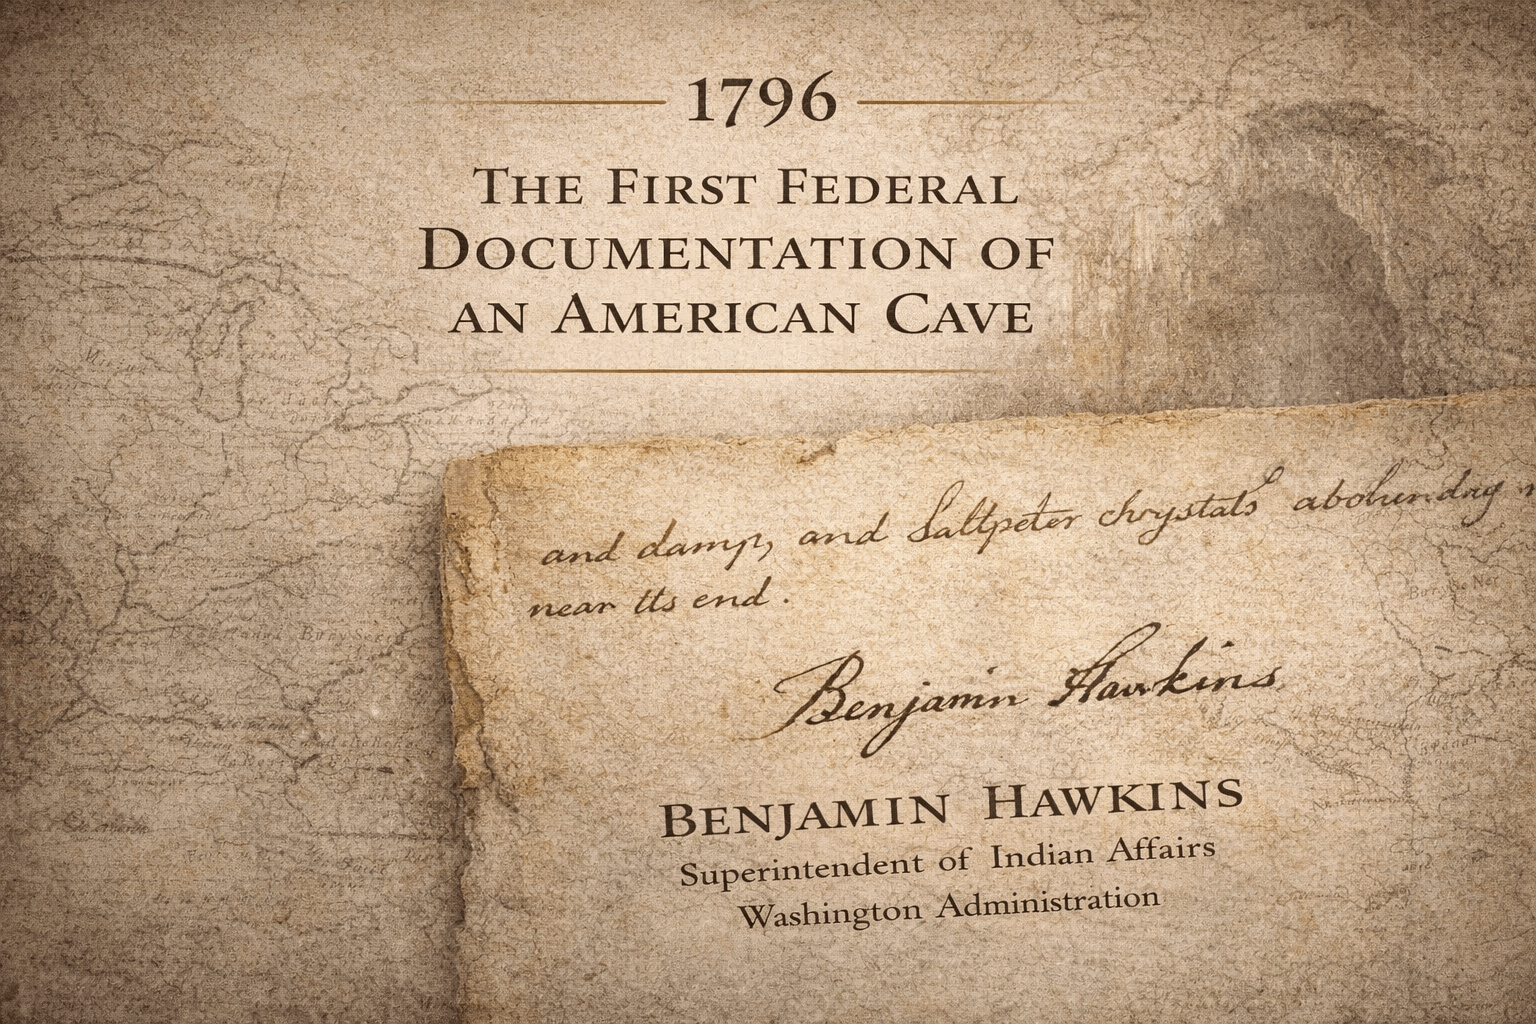 1796
THE FIRST FEDERAL
DOCUMENTATION OF
AN AMERICAN CAVE
and damp, and Saltpeter chrystals
near tts end.
Benjamin Hawkins
BENJAMIN HAWKINS
Superintendent of Indian Affairs
Washington Administration